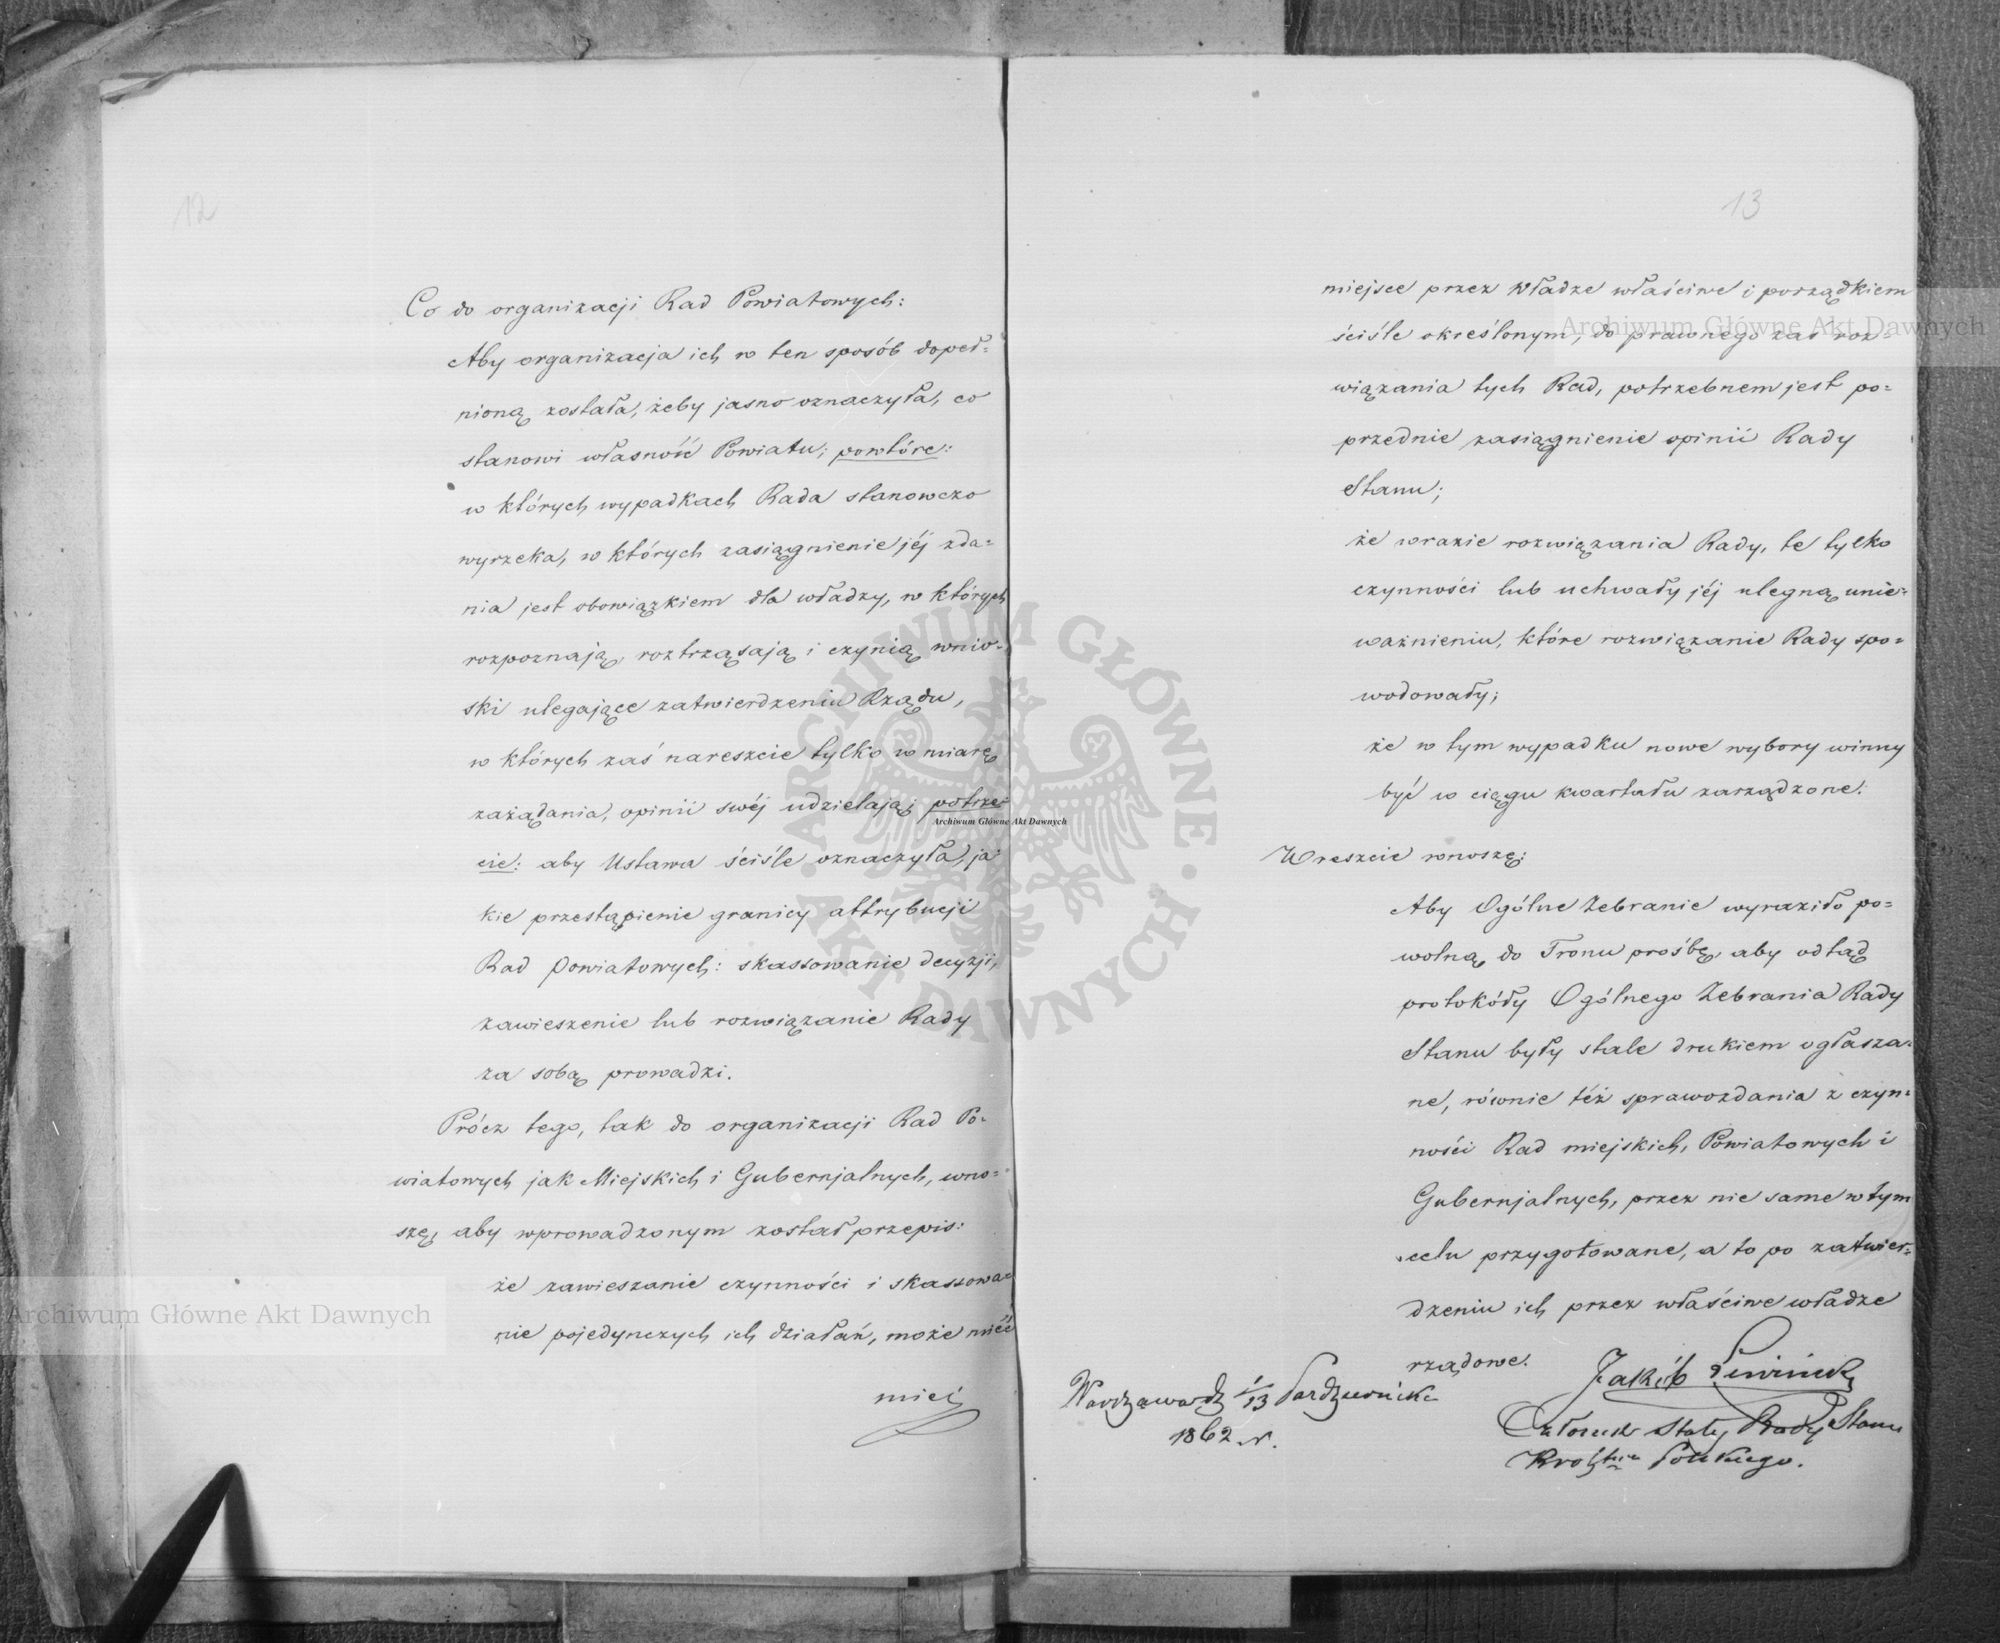 12
Co do organizacji Rad Powiatowych:
Aby organizacja ich w ten sposób dopeł=
nioną została, żeby jasno oznaczyła, co
stanowi własność Powiatu; powtóre:
w których wypadkach Rada stanowczo
wyrzeka, w których zasiągnienie jéj zda=
nia jest obowiązkiem dla władzy, w których
rozpoznają, roztrząsają i czynią wnio=
ski ulegające zatwierdzeniu Rządu,
w których zaś nareszcie tylko w miarę
zażądania, opinii swéj udzielają; potrze=
cie: aby Ustawa ściśle oznaczyła, ja=
kie przestąpienie granicy attrybucji
Rad Powiatowych: skassowanie decyzji,
zawieszenie lub rozwiązanie Rady
za sobą prowadzi.
Prócz tego, tak do organizacji Rad Po=
wiatowych jak Miejskich i Gubernjalnych, wno=
szę, aby wprowadzonym został przepis:
że zawieszanie czynności i skassowa=
nie pojedynczych ich działań, może mieć
mieć
13
miejsce przez Władze właściwe i porządkiem
ściśle określonym, do prawnego zaś roz=
wiązania tych Rad, potrzebnem jest po=
przednie zasiągnienie opinii Rady
Stanu;
że wrazie rozwiązania Rady, te tylko
czynności lub uchwały jéj ulegną unie=
ważnieniu, które rozwiązanie Rady spo=
wodowały;
że w tym wypadku nowe wybory winny
być w ciągu kwartału zarządzone.
Wreszcie wnoszę:
Aby Ogólne Zebranie wyraziło po=
wolną do Tronu prośbę, aby odtąd
protokóły Ogólnego Zebrania Rady
Stanu były stale drukiem ogłasza=
ne, równie téż sprawozdania z czyn=
ności Rad miejskich, Powiatowych i
Gubernjalnych, przez nie same w tym
celu przygotowane, a to po zatwier=
dzeniu ich przez właściwe władze
rządowe.
Jakób Lewiński
Członek Stały Rady Stanu
Królstwa Polskiego.
1/13 Października
1862 r.
Archiwum Główne Akt Dawnych
Archiwum Główne Akt Dawnych
Archiwum Główne Akt Dawnych
ARCHIWUM GŁÓWNE · AKT DAWNYCH ·